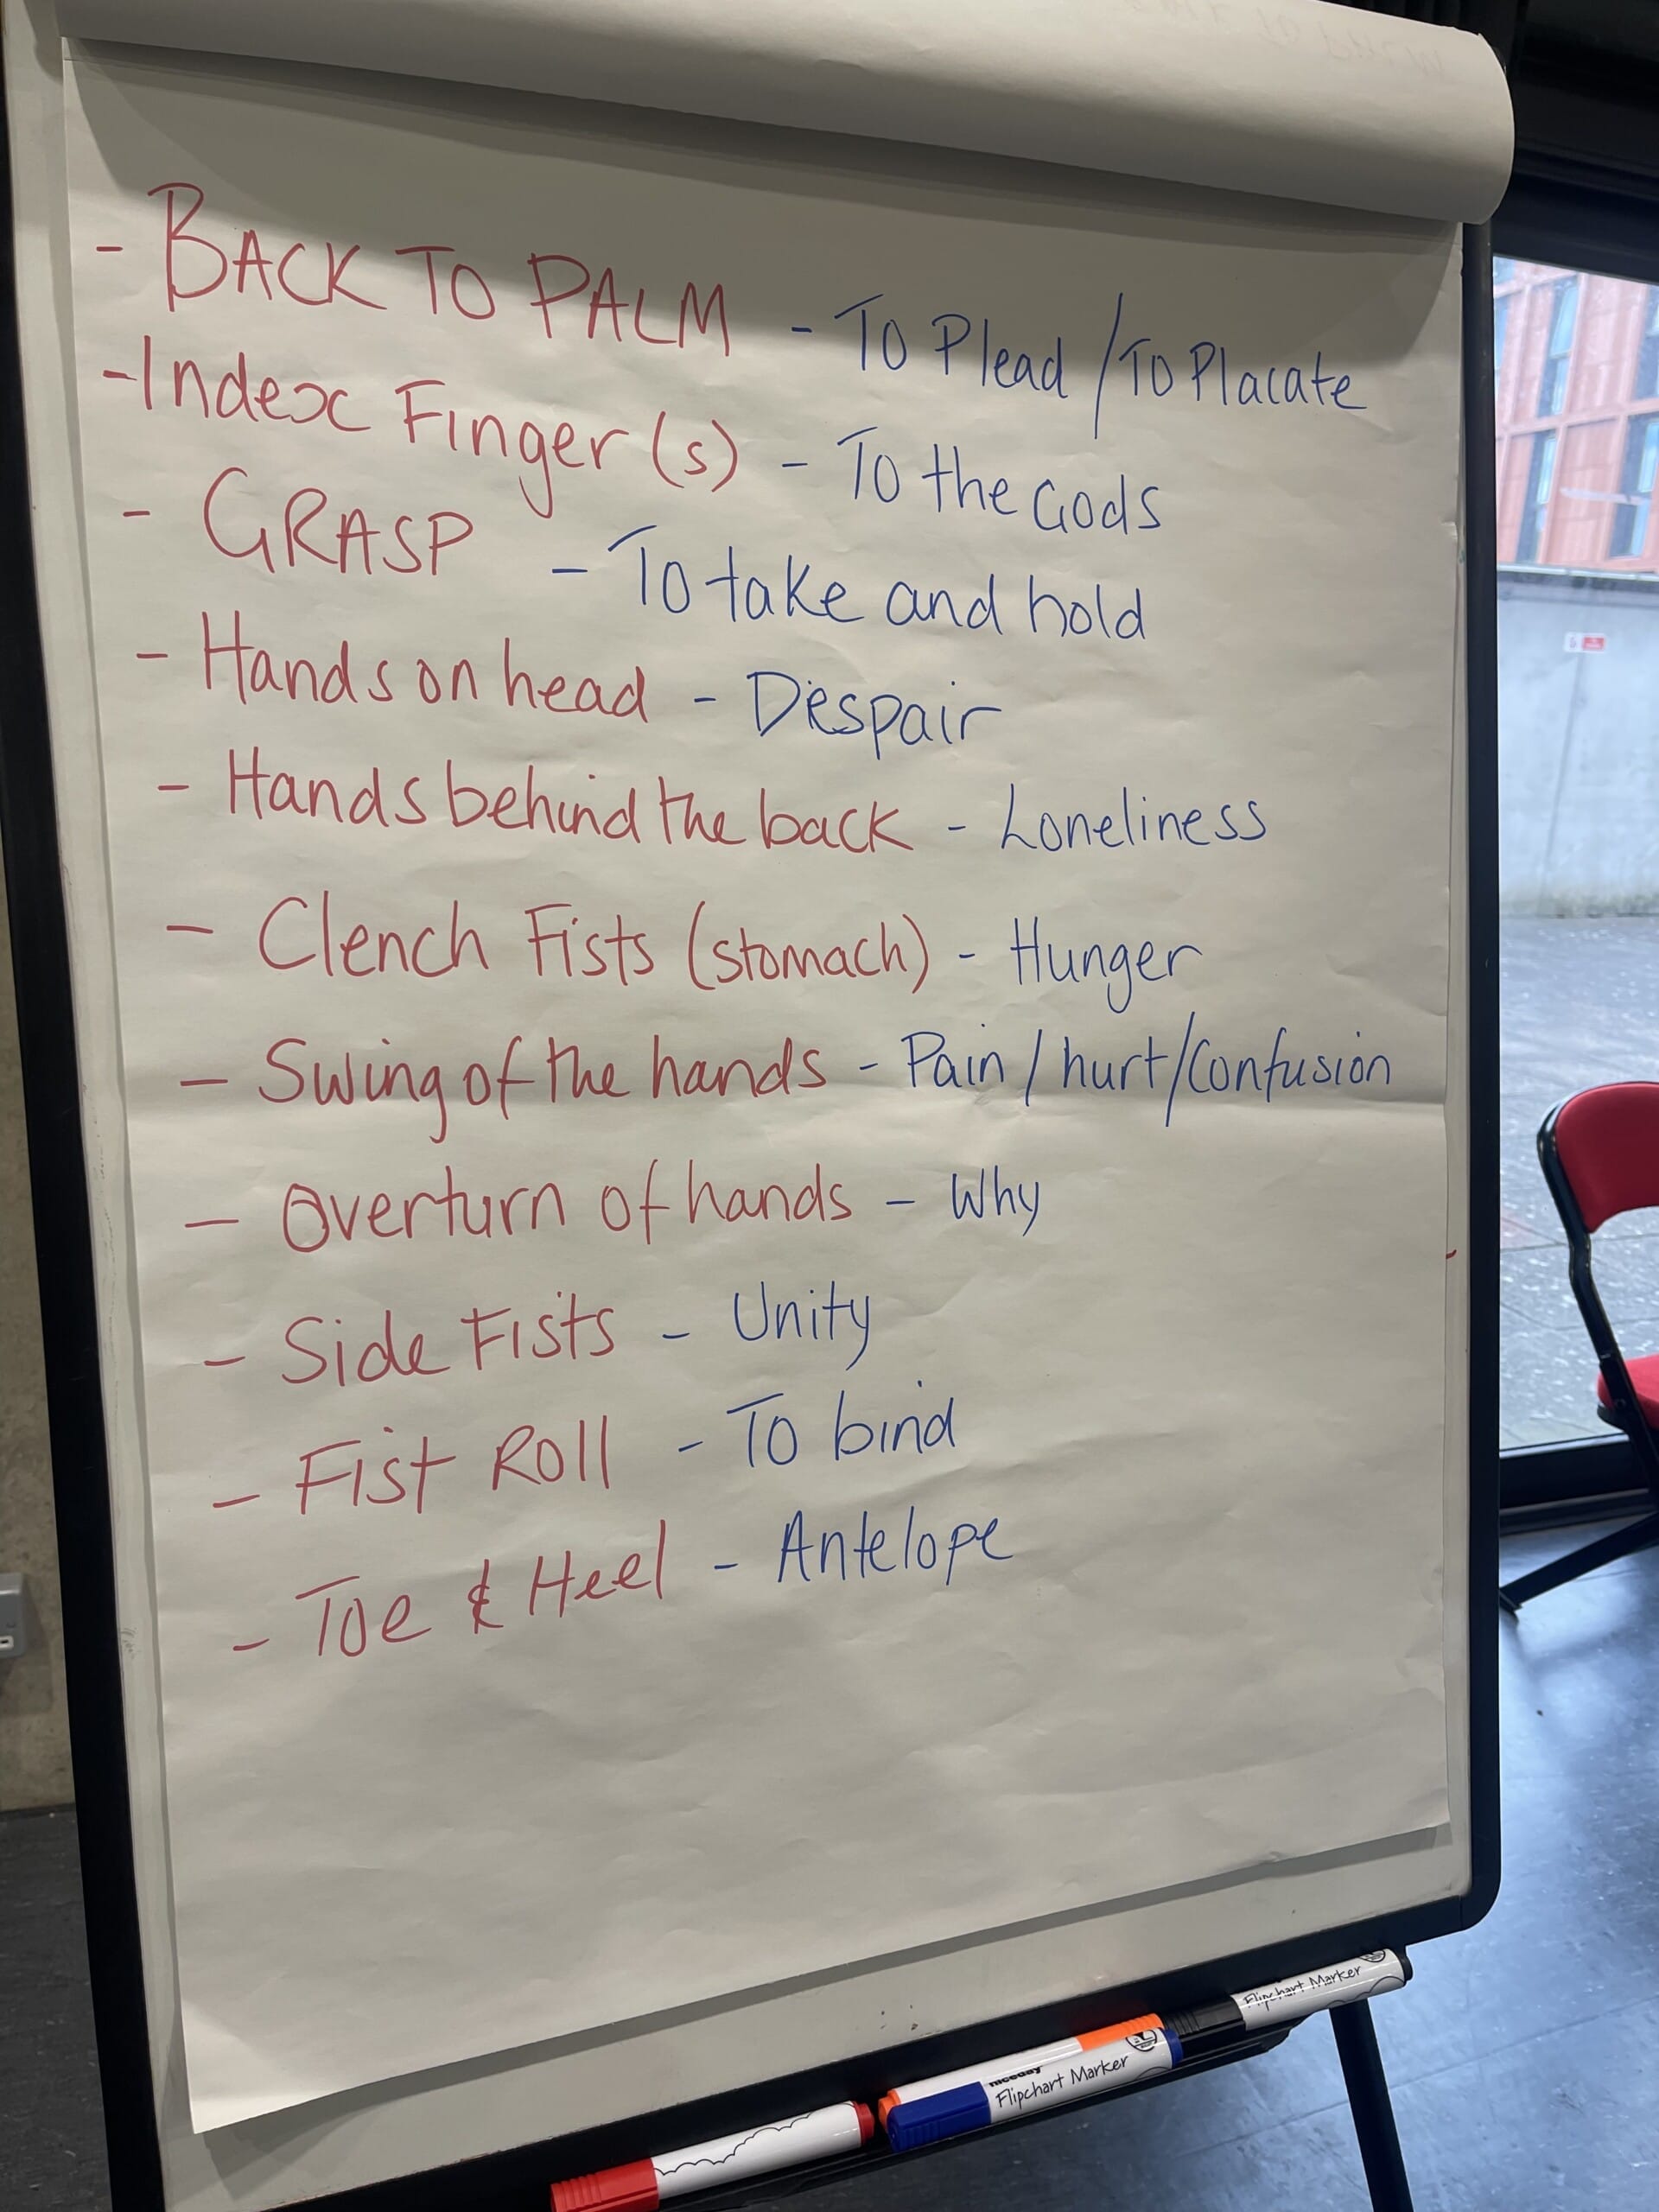 - BACK TO PALM - To Plead / To Placate
- Index Finger(s) - To the Gods
- GRASP - To take and hold
- Hands on head - Despair
- Hands behind the back - Loneliness
- Clench Fists (stomach) - Hunger
- Swing of the hands - Pain / hurt / Confusion
- Overturn of hands - Why
- Side Fists - Unity
- Fist Roll - To bind
- Toe & Heel - Antelope
Flipchart Marker
niceday
Flipchart Marker